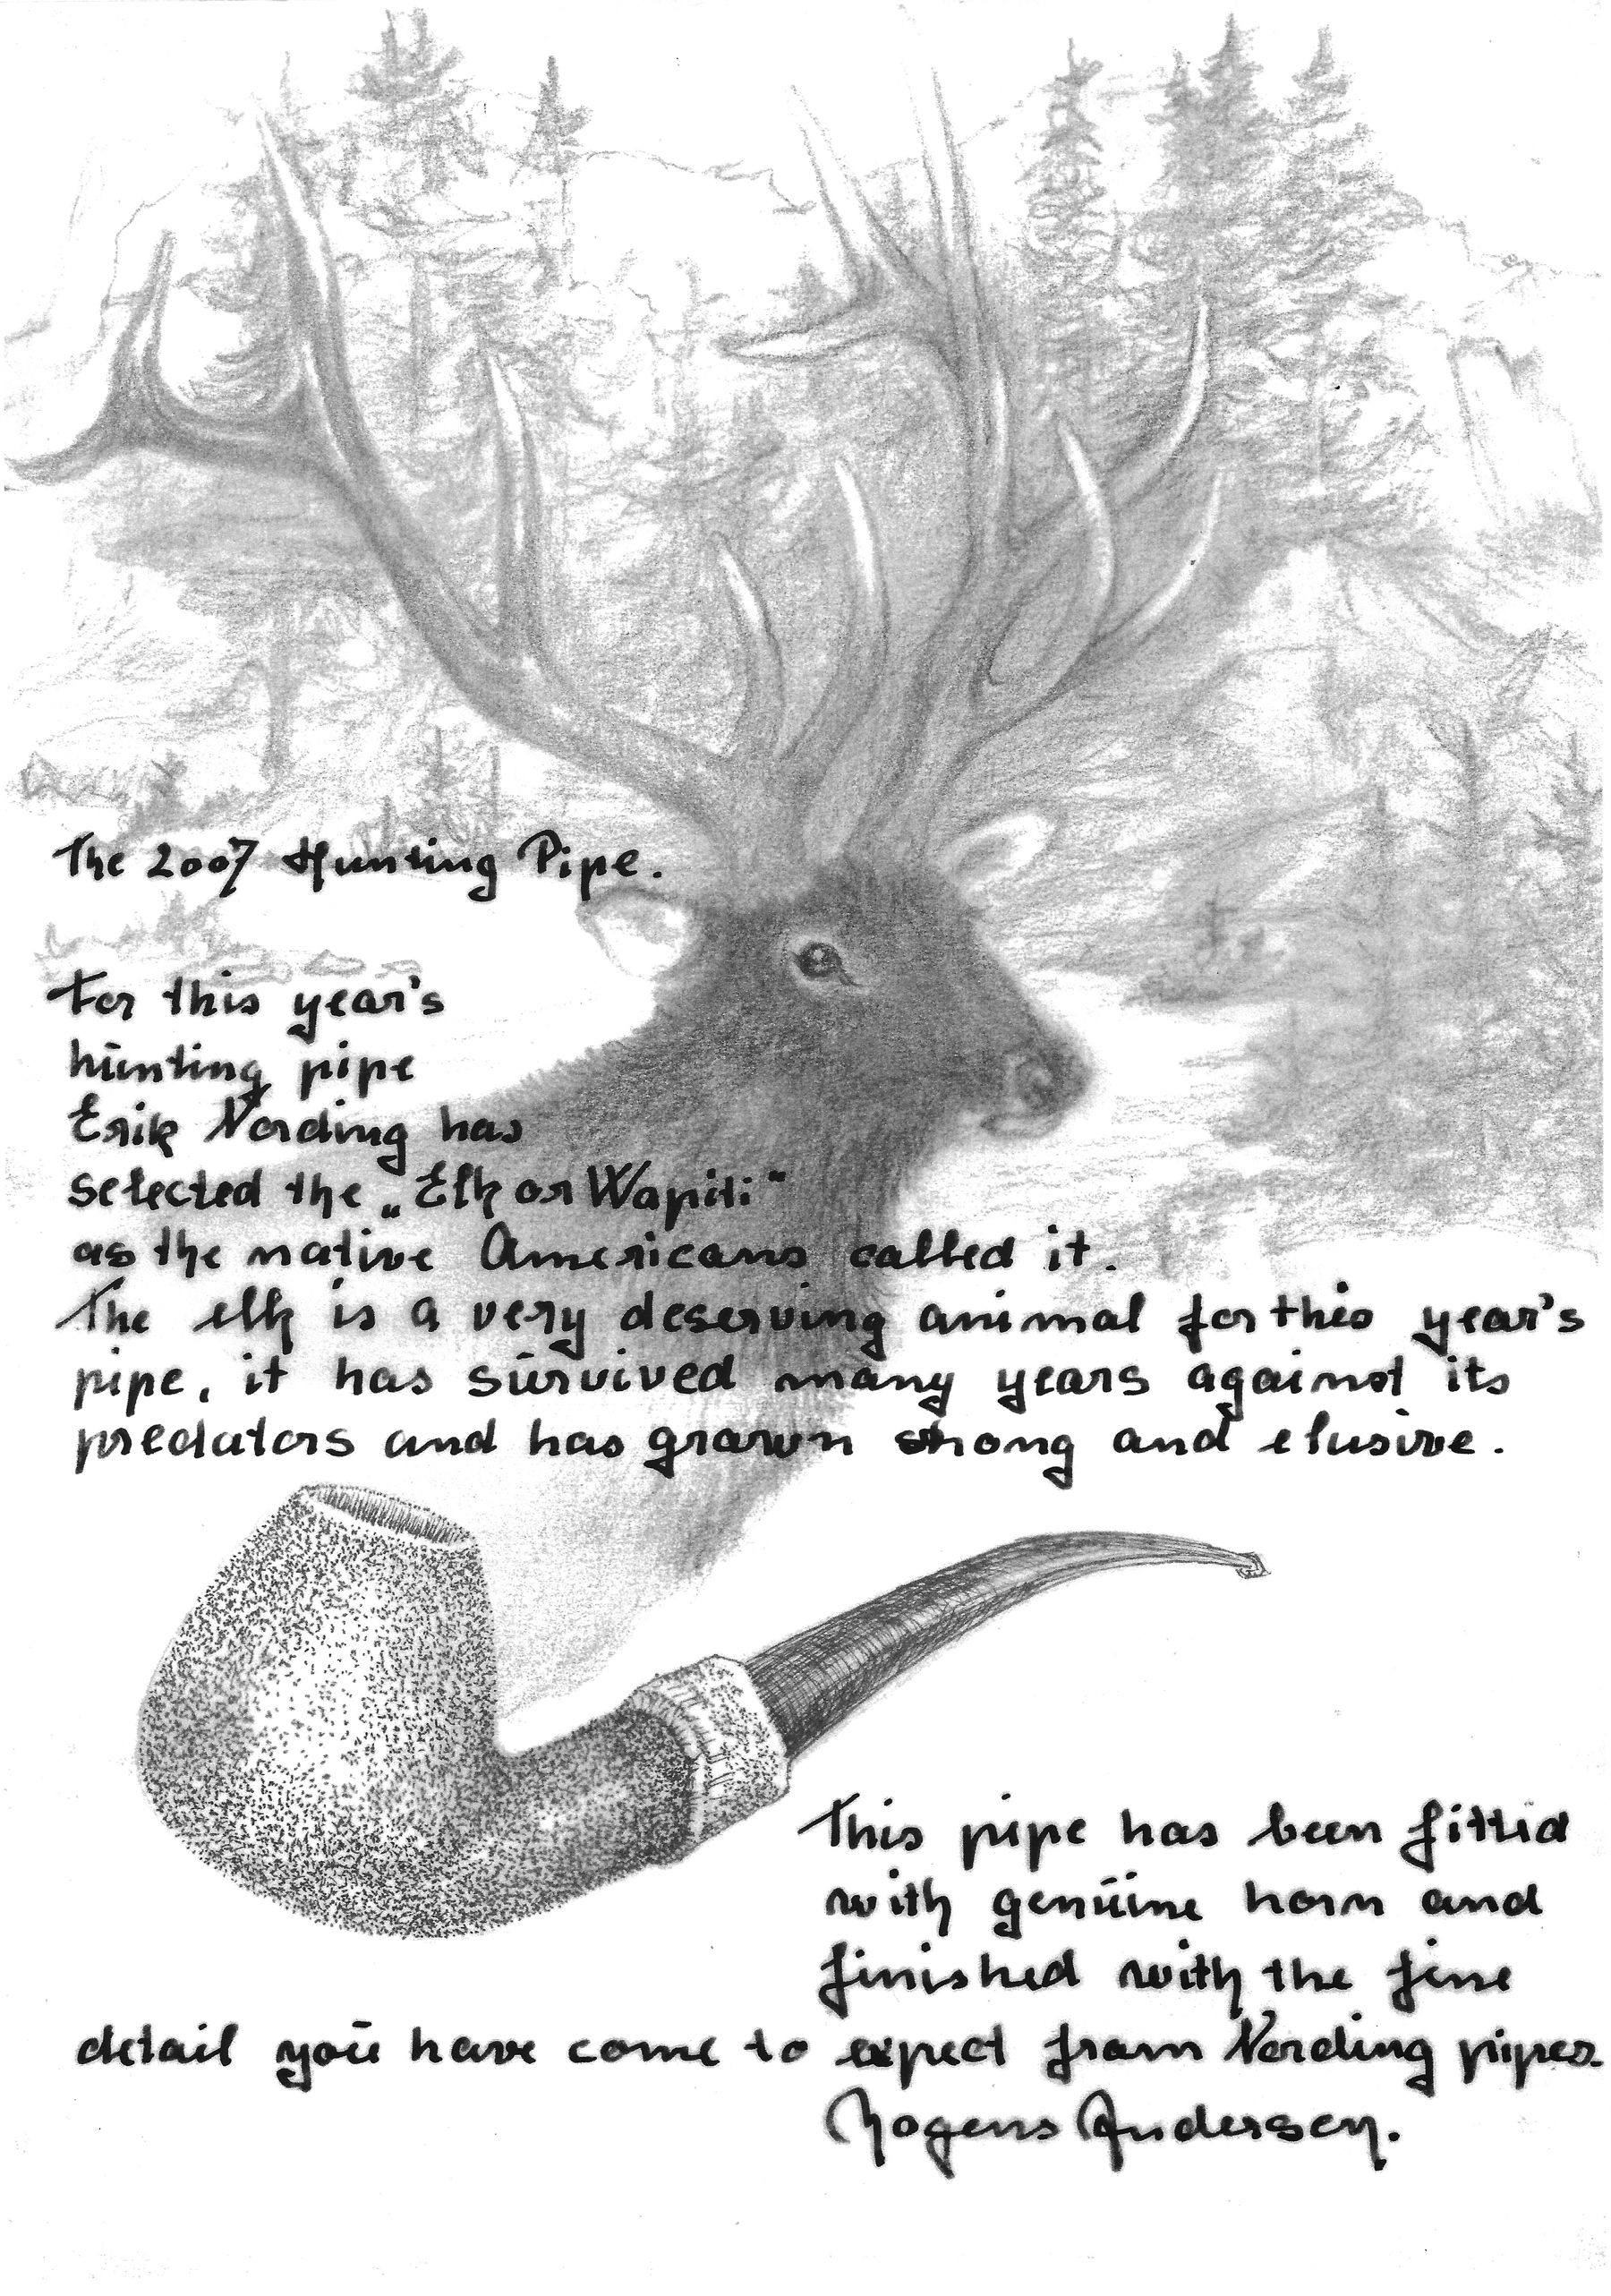 The 2007 Hunting Pipe.
For this year's
hūnting pipe
Erik Nording has
selected the „Elk or Wapiti"
as the native Americans called it.
The elk is a very deserving animal for this year's
pipe, it has sūrvived many years against its
predators and has grown strong and elusive.
This pipe has been fitted
with genūine horn and
finished with the fine
detail yoū have come to expect from Nording pipes.
Mogens Andersen.